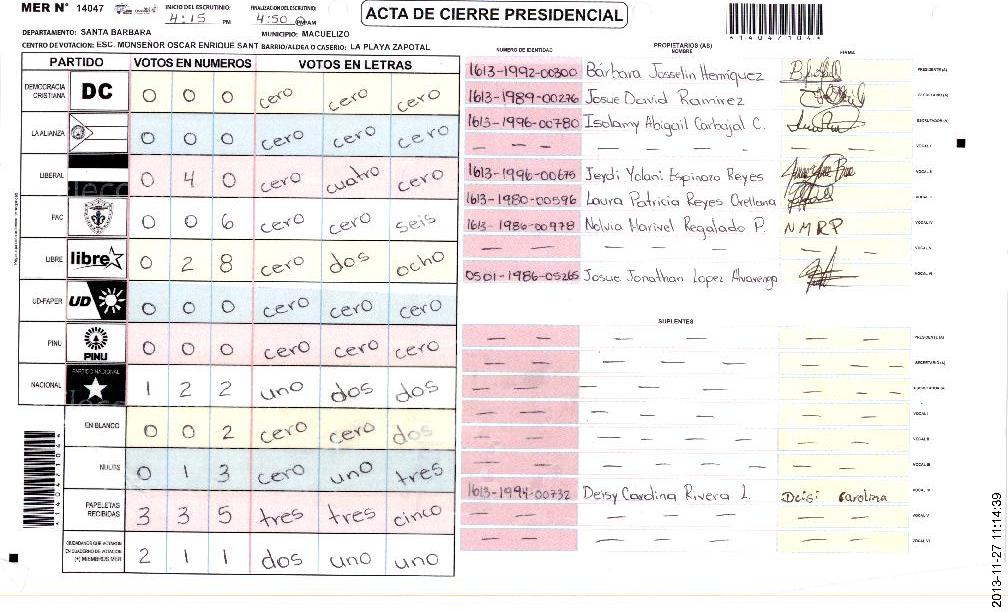 MER N° 14047
INICIO DEL ESCRUTINIO: 4:15 PM
FINALIZACION ESCRUTINIO: 4:50 AM
ACTA DE CIERRE PRESIDENCIAL
140471044
DEPARTAMENTO: SANTA BARBARA
MUNICIPIO: MACUELIZO
CENTRO DE VOTACION: ESC. MONSEÑOR OSCAR ENRIQUE SANT BARRIO/ALDEA O CASERIO: LA PLAYA ZAPOTAL
PARTIDO VOTOS EN NUMEROS VOTOS EN LETRAS
DEMOCRACIA CRISTIANA DC 0 0 0 cero cero cero
LA ALIANZA 0 0 0 cero cero cero
LIBERAL 0 4 0 cero cuatro cero
PAC 0 0 6 cero cero seis
LIBRE libre 0 2 8 cero dos ocho
UD-FAPER UD 0 0 0 cero cero cero
PINU PINU 0 0 0 cero cero cero
NACIONAL PARTIDO NACIONAL 1 2 2 uno dos dos
EN BLANCO 0 0 2 cero cero dos
NULOS 0 1 3 cero uno tres
PAPELETAS RECIBIDAS 3 3 5 tres tres cinco
CIUDADANOS QUE VOTARON EN CUADERNO DE VOTACION (+) MIEMBROS MER 2 1 1 dos uno uno
NUMERO DE IDENTIDAD PROPIETARIOS (AS) NOMBRE FIRMA
1613-1992-00300 Bárbara Josselin Henriquez PRESIDENTE (A)
1613-1989-00276 Josue David Ramirez SECRETARIO (A)
1613-1996-00780 Isolamy Abigail Carbajal C. ESCRUTADOR (A)
— — — — — — — — VOCAL I
1613-1996-00675 Jeydi Yolani Espinoza Reyes VOCAL II
1613-1980-00596 Laura Patricia Reyes Orellana VOCAL III
1613-1986-00978 Nolvia Marivel Regalado P. NMRP VOCAL IV
— — — — — — VOCAL V
0501-1986-05265 Josue Jonathan Lopez Alvarenga VOCAL VI
SUPLENTES
— — — — — — PRESIDENTE (A)
— — — — — — — — SECRETARIO (A)
— — — — — — — ESCRUTADOR (A)
— — — — — — — VOCAL I
— — — — — — — VOCAL II
— — — — — — — VOCAL III
1613-1994-00732 Deisy Carolina Rivera L. Deisi Carolina VOCAL IV
— — — — — — — VOCAL V
— — — — — — — VOCAL VI
2013-11-27 11:14:39